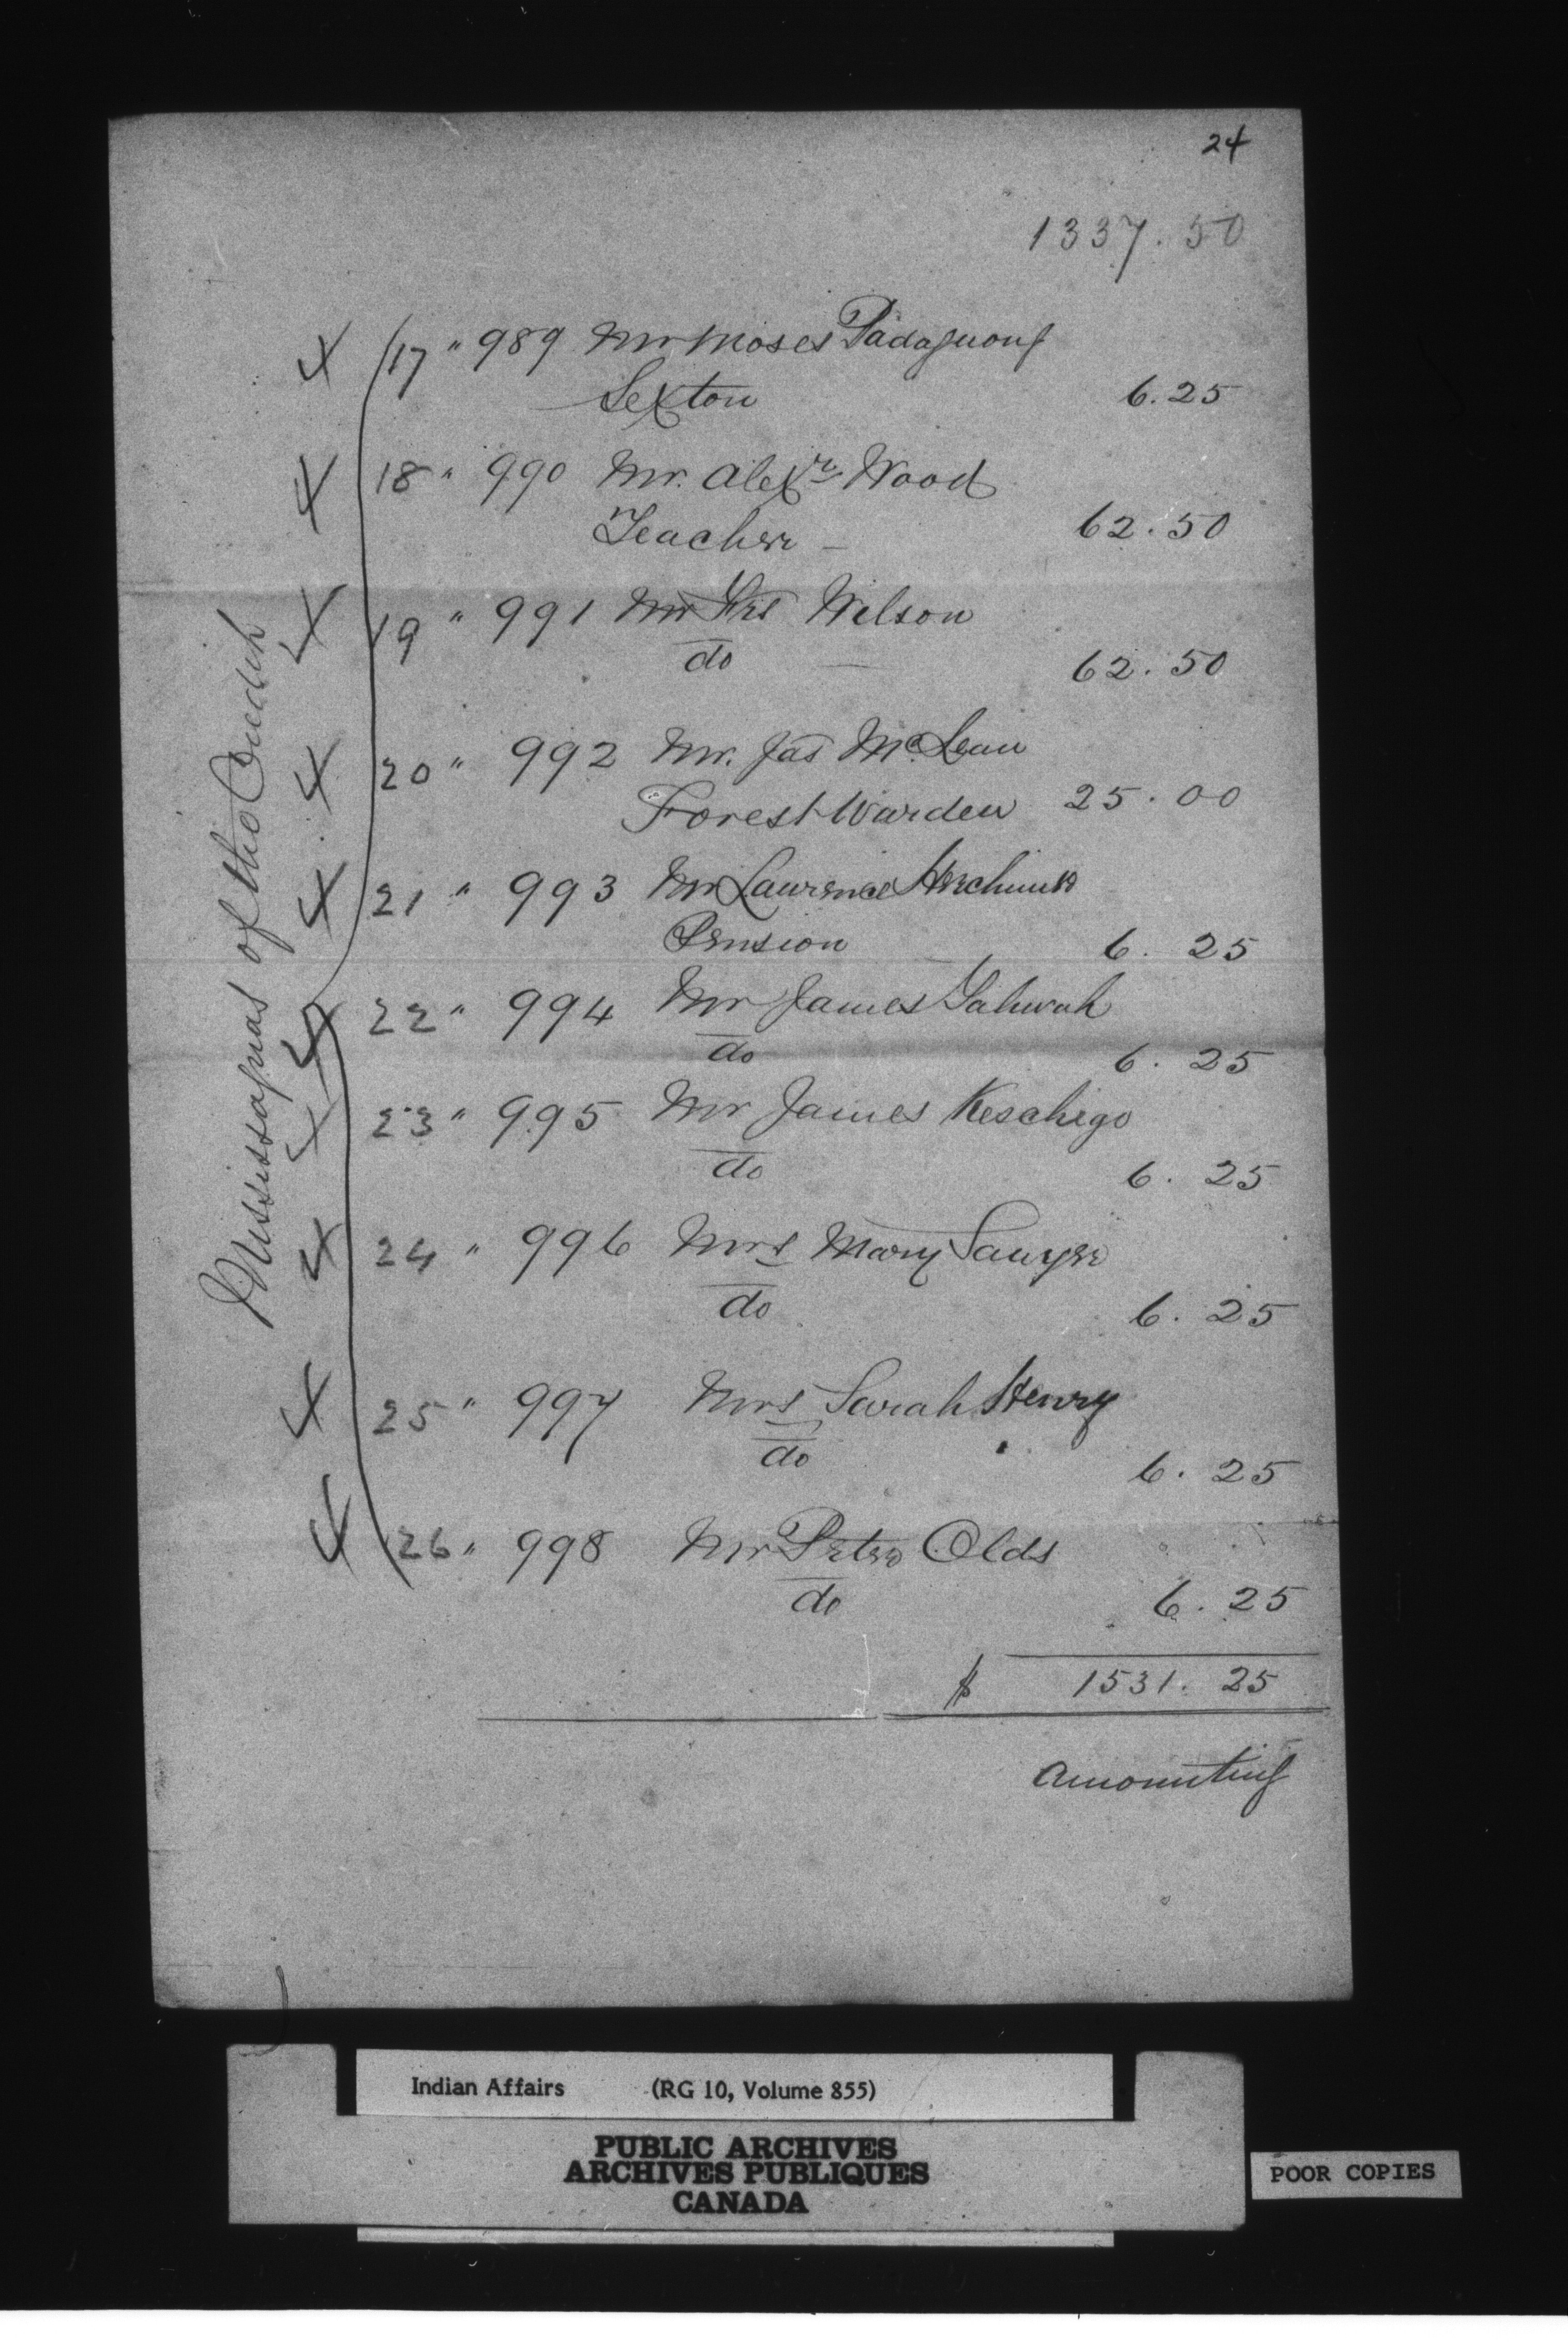 24
1337.50
17 " 989 Mr Moses Padaguong
Sexton 6.25
18 " 990 Mr. Alexr Wood
Teacher — 62.50
19 " 991 Mr Wilson
do — 62.50
20 " 992 Mr. Jas McLean
Forest Warden 25.00
21 " 993 Mr Lawrence Herchimer
Pension 6.25
22 " 994 Mr James
do 6.25
23 " 995 Mr James Keschego
do 6.25
24 " 996 Mrs Mary Sawyer
do 6.25
25 " 997 Mrs Sarah Henry
do 6.25
26 " 998 Mr Peter Olds
do 6.25
$ 1531.25
amounting
Mississaguas of the Credit
Indian Affairs (RG 10, Volume 855)
PUBLIC ARCHIVES
ARCHIVES PUBLIQUES
CANADA
POOR COPIES